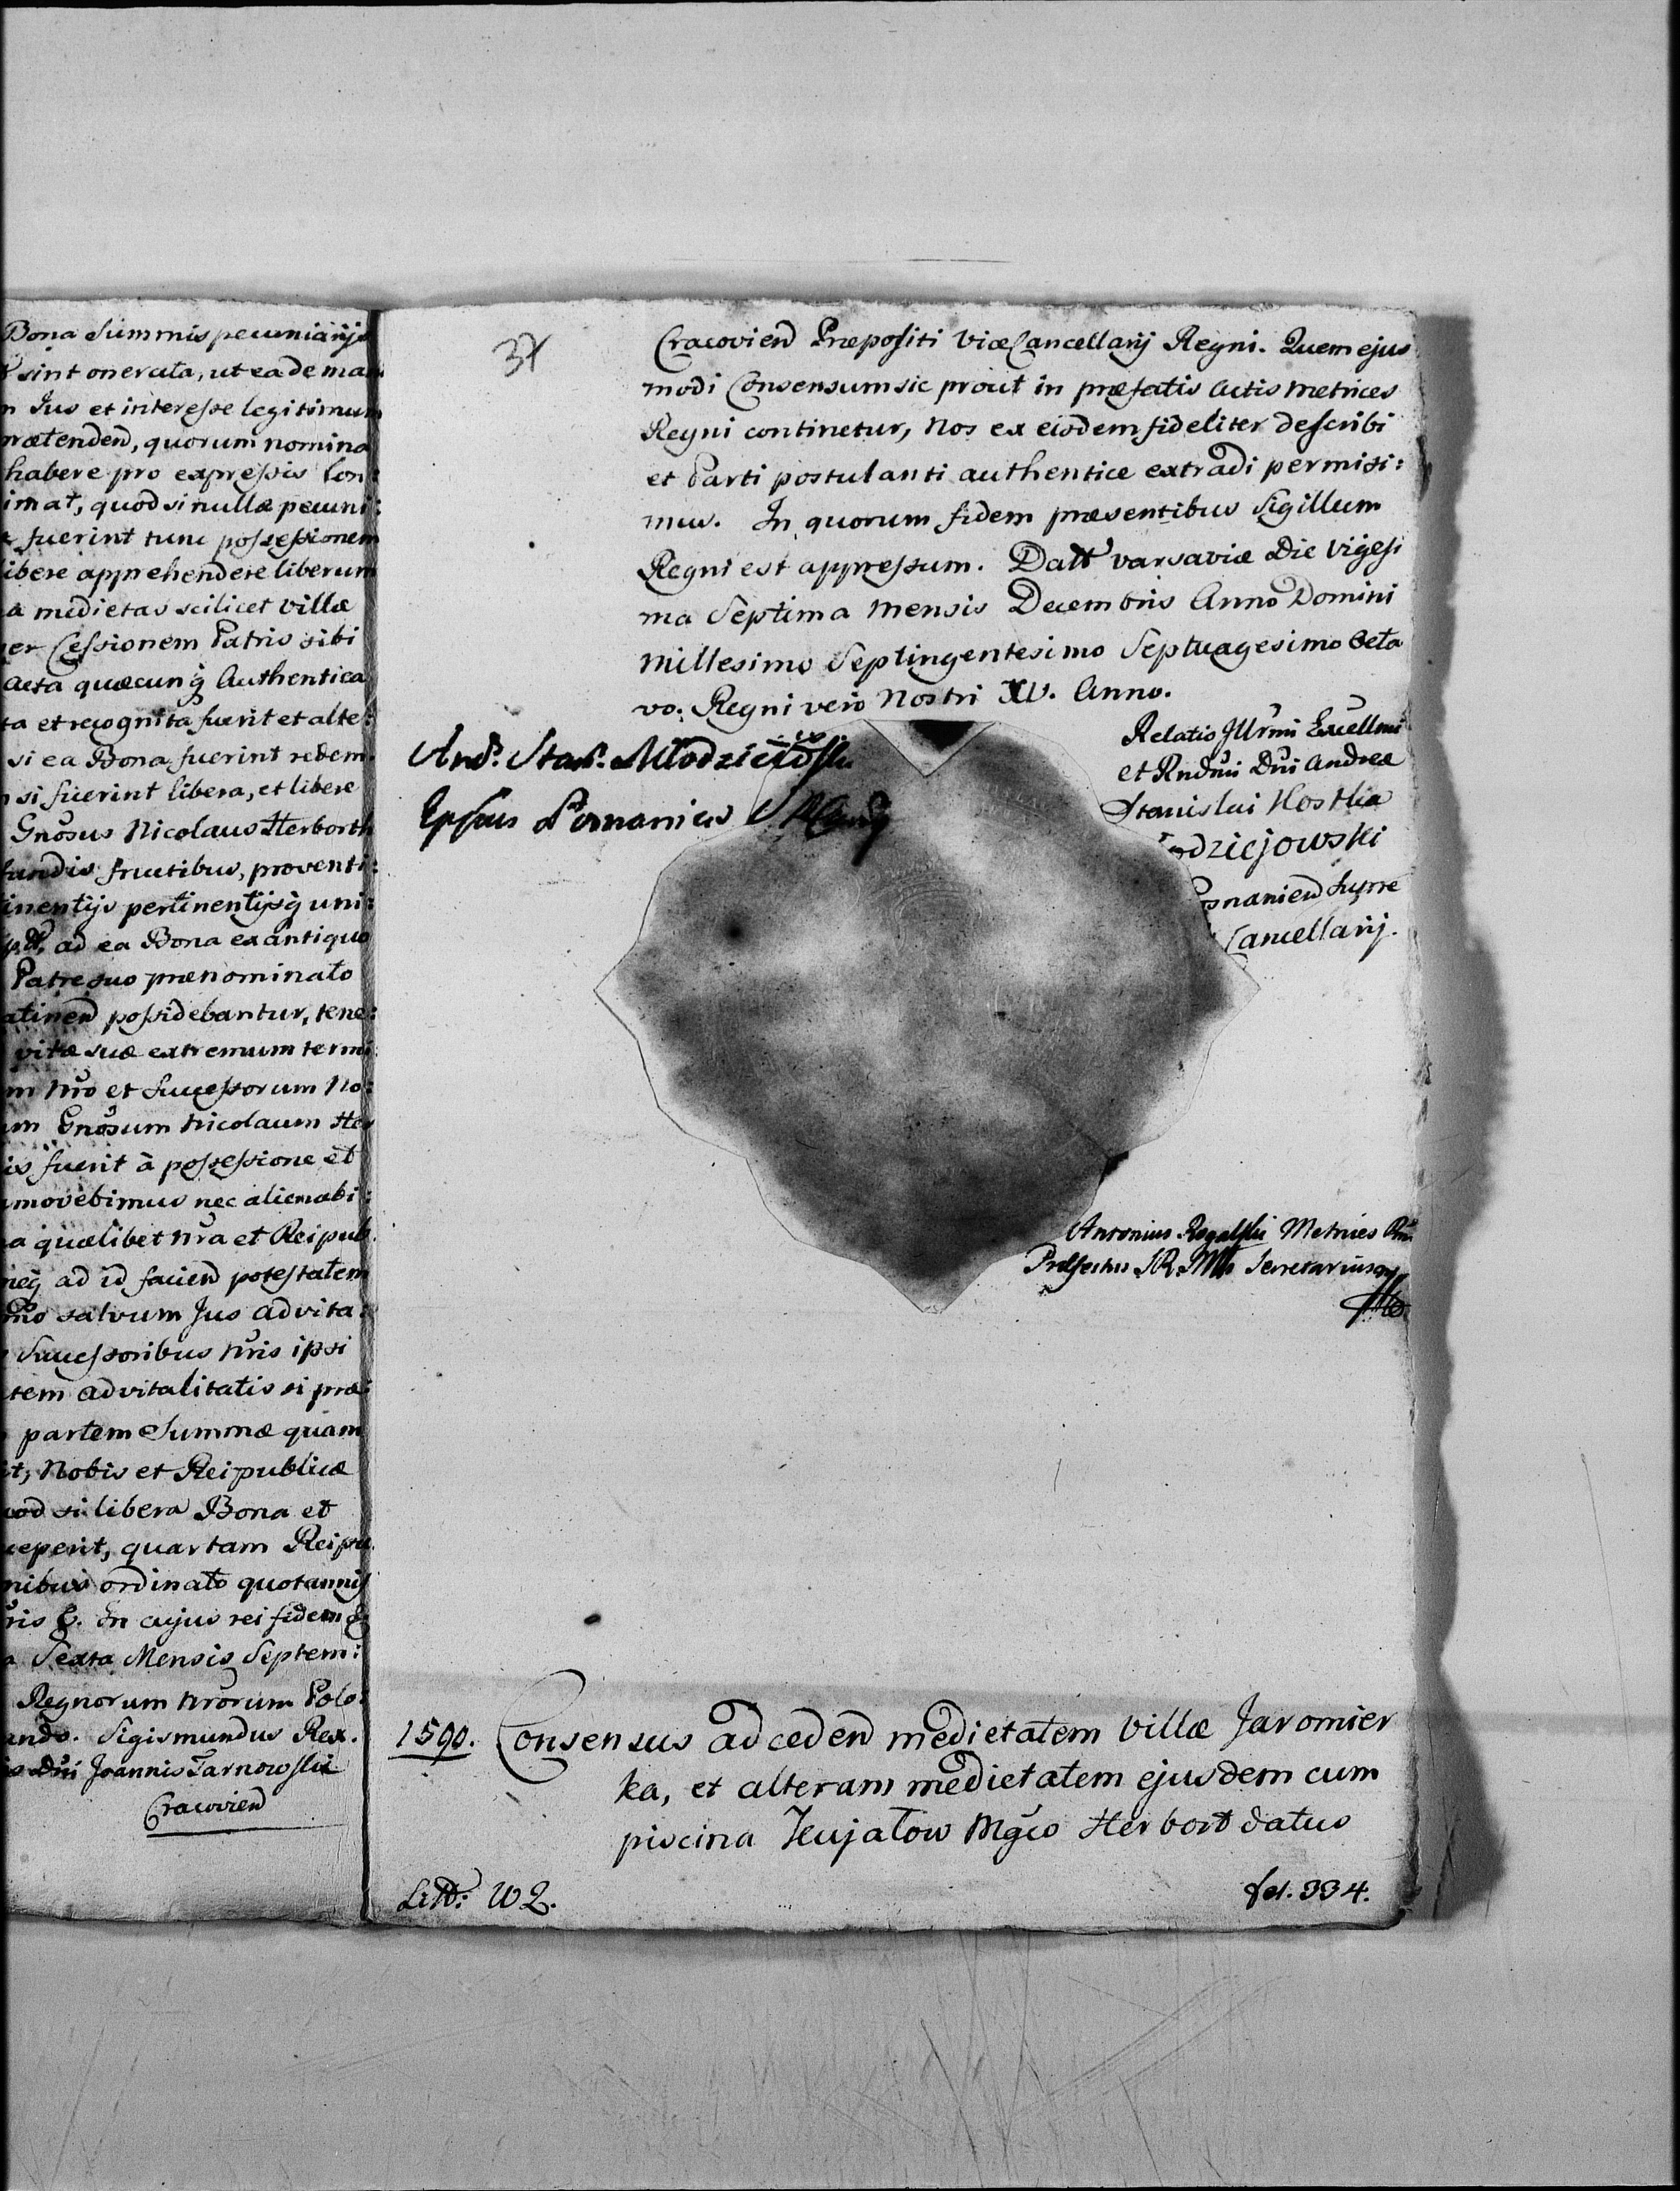 Bona Summis pecuniarijs
sint onerata, ut ea de man
Jus et interesse legitimum
prætendend, quorum nomina
habere pro expressis Con:
imat, quod si nullæ pecuni:
fuerint tunc possessionem
libere apprehendere liberum
a medietas scilicet Villæ
per Cessionem Patris sibi
Acta quæcunq Authentica
ta et recognita fuerit et alte:
si ea Bona fuerint redem:
si fuerint libera, et libere
Gnosus Nicolaus Herborth
fundis fructibus, proventi:
inentijs pertinentijsq uni:
ad ea Bona ex antiquo
Patre suo prænominato
atinend possidebantur, tene:
vitæ suæ extremum termi
m Nro et Successorum No:
um Gnosum Nicolaum Her
is fuerit à possessione et
movebimus nec alienabi:
a quælibet Nra et Reipub.
neq ad id faciend potestatem
salvum Jus advita:
Successoribus Nris ipsi
tem advitalitatis si præ:
partem Summæ quam
it, Nobis et Reipublicæ
uod si libera Bona et
ceperit, quartam Reipu.
nibus ordinato quotannis
ris &. In cujus rei fidem &
a Sexta Mensis Septem:
Regnorum Nrorum Polo:
ando. Sigismundus Rex.
Dni Joannis Tarnowski
Cracovien
37
Cracoviend Præpositi Vice Cancellarij Regni. Quem ejus
modi Consensum sic prout in præfatis Actis Metrices
Regni continetur, Nos ex eisdem fideliter describi
et Parti postulanti authentice extradi permisi:
mus. In quorum fidem præsentibus Sigillum
Regni est appressum. Datt Varsaviæ Die Vigesi
ma Septima Mensis Decembris Anno Domini
Millesimo Septingentesimo Septuagesimo Octa
vo. Regni vero Nostri XV. Anno.
And. Stan. Młodzieiowski
Epus Posnaniens
Relatio Illrmi Excellmi
et Rndmi Dni Andreæ
Stanislai Kostka
odziejowski
osnaniend Supre
Cancellarij.
Antonius Rogalski Metrices Rni
Præfectus S.R.Mtis Secretarius mp
1590. Consensus ad cedend medietatem Villæ Jaromier
ka, et alteram medietatem ejusdem cum
piscina Kujatow Mgco Herbort datus
Litt: W2.
fol. 334.